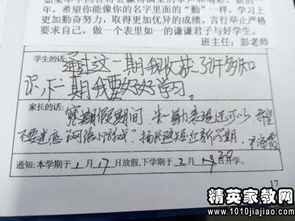 年,希望你能像你的名字里面的“勤”一样,学习上
更加勤奋努力,取得更加优异的成绩,言行举止严格
要求自己,做一个表里如一的谦谦君子与好学生。
班主任:彭老师
学生的话:
通过这一期我收获了许多知
识,下一期我要好好学习。
家长的话:
寒期假期间
表现还可以 希望
不要迷恋“网络小游戏”
通知:本学期于1月17日放假,下学期于2月
17
精英家教网
www.1010jiajiao.com